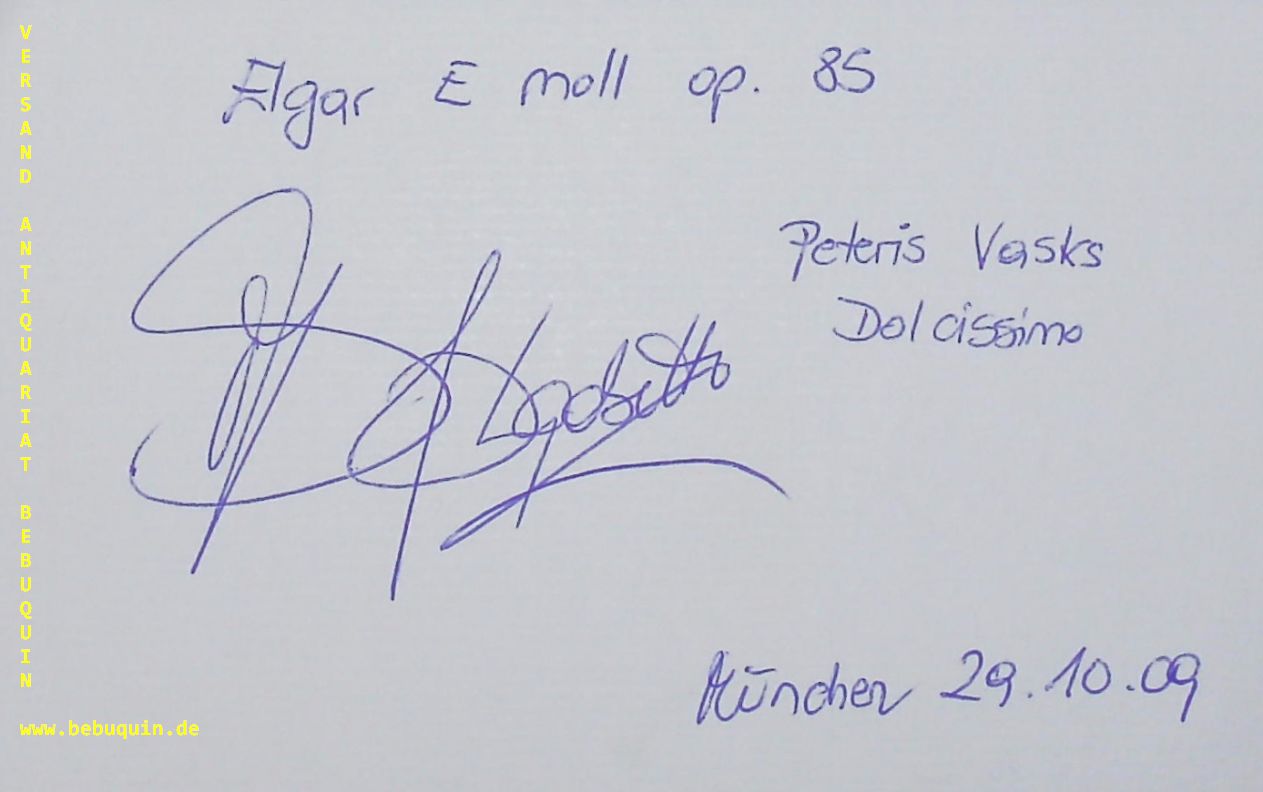 Elgar E moll op. 85
Peteris Vasks
Dolcissimo
München 29.10.09
VERSAND ANTIQUARIAT BEBUQUIN
www.bebuquin.de